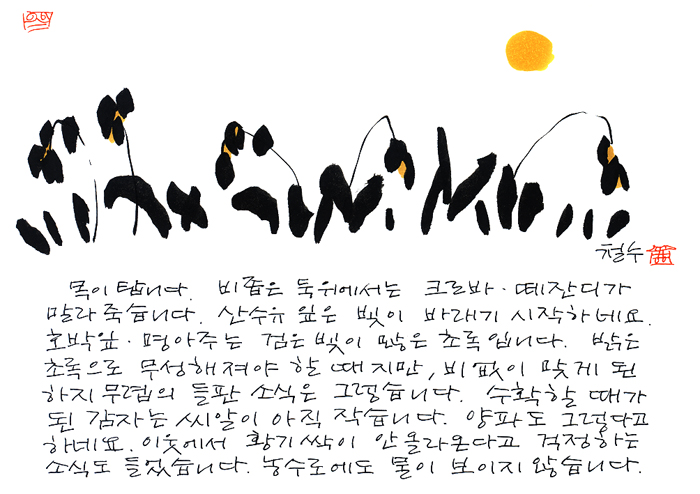 철수
목이 탑니다. 비좁은 둑위에서는 크로바·떼잔디가
말라 죽습니다. 산수유 잎은 빛이 바래기 시작하네요.
호박잎·명아주는 검은빛이 많은 초록입니다. 밝은
초록으로 무성해져야 할 때지만, 비없이 맞게 된
하지무렵의 들판 소식은 그렇습니다. 수확할 때가
된 감자는 씨알이 아직 작습니다. 양파도 그렇다고
하네요. 이웃에서 황기싹이 안올라온다고 걱정하는
소식도 들었습니다. 농수로에도 물이 보이지 않습니다.